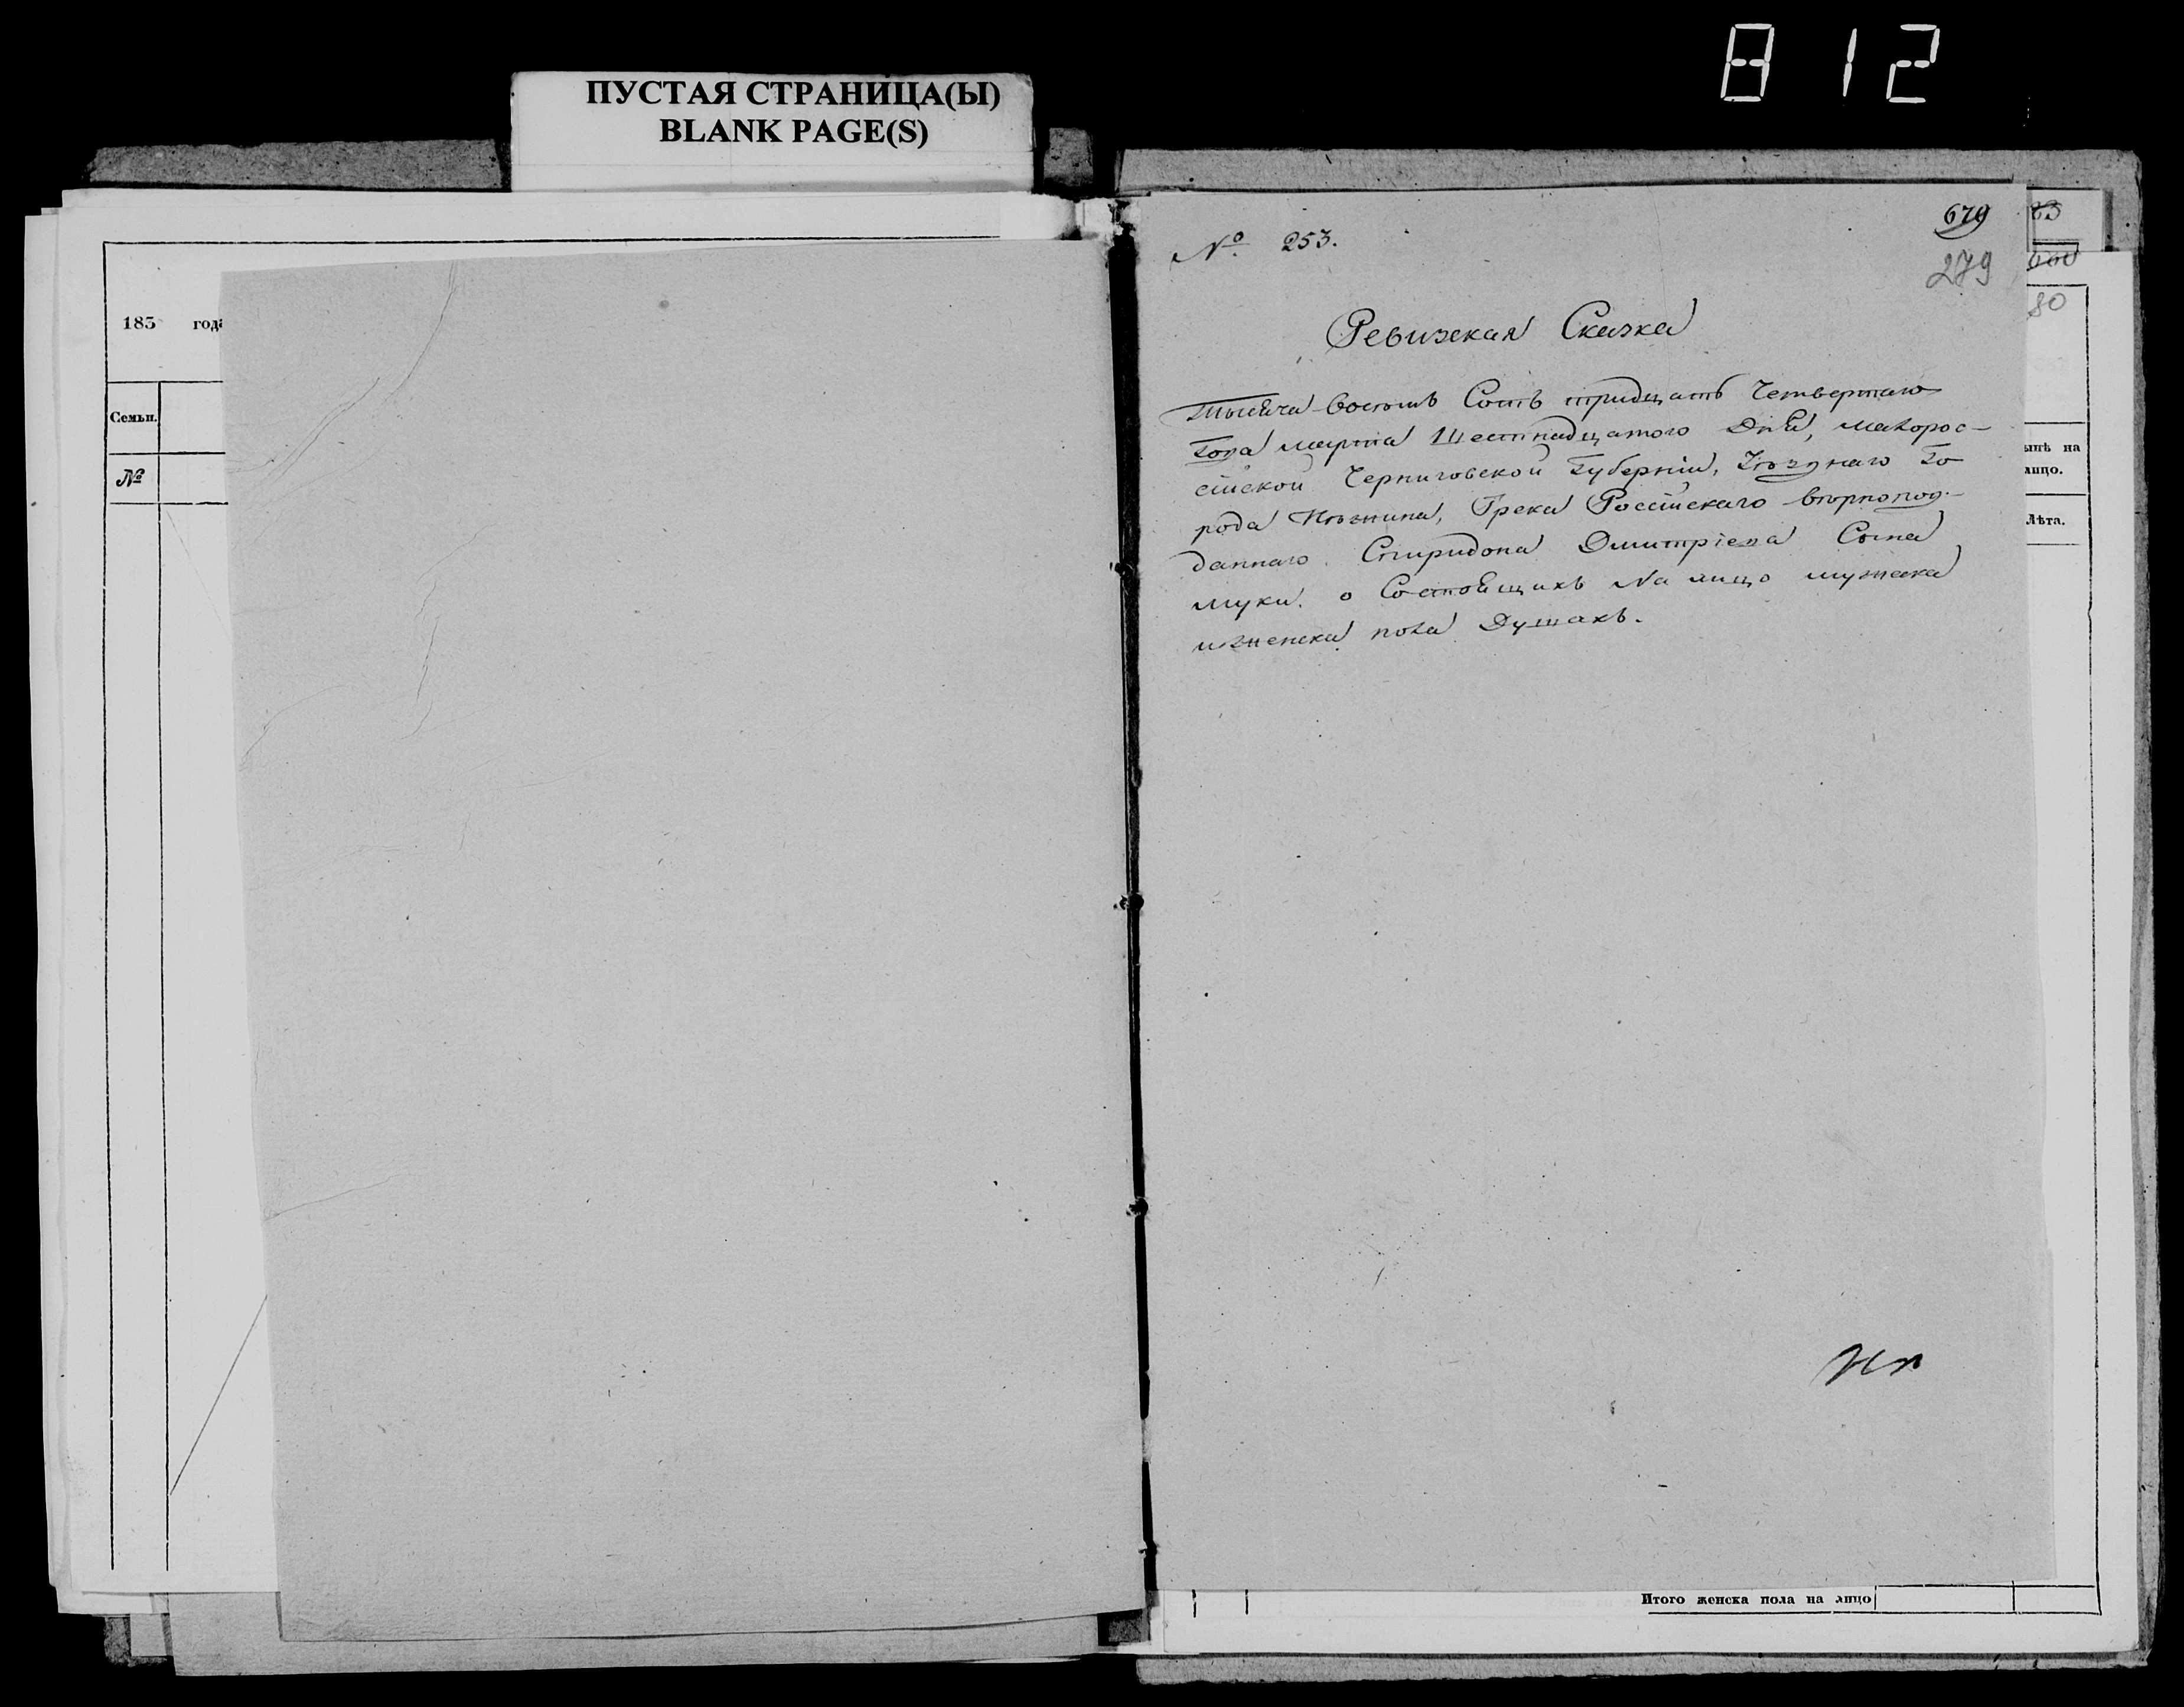 812
ПУСТАЯ СТРАНИЦА(Ы)
BLANK PAGE(S)
185 года
Семьи.
№
№ 253.
679
279
80
Ревизская Сказка
Тысяча восемь Сотъ тридцать Четвертаго
Года марта Шестнадцатого Дня, малорос-
сiйской Черниговской Губернiи, Уѣзднаго Го
рода Нѣжина, Грека Россiйскаго вѣрнопод-
даннаго Спиридона Дмитрiева Сына
Муки. о Состоящихъ На лицо мужеска
и женска пола Душахъ.
на
лицо.
Лѣта.
Итого женска пола на лицо